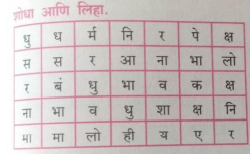 शोधा आणि लिहा.
धु ध र्म नि र पे क्ष
स स र आ ना भा लो
र बं धु भा व क क्ष
ना भा व धु शा क्ष नि
मा मा लो ही य ए र